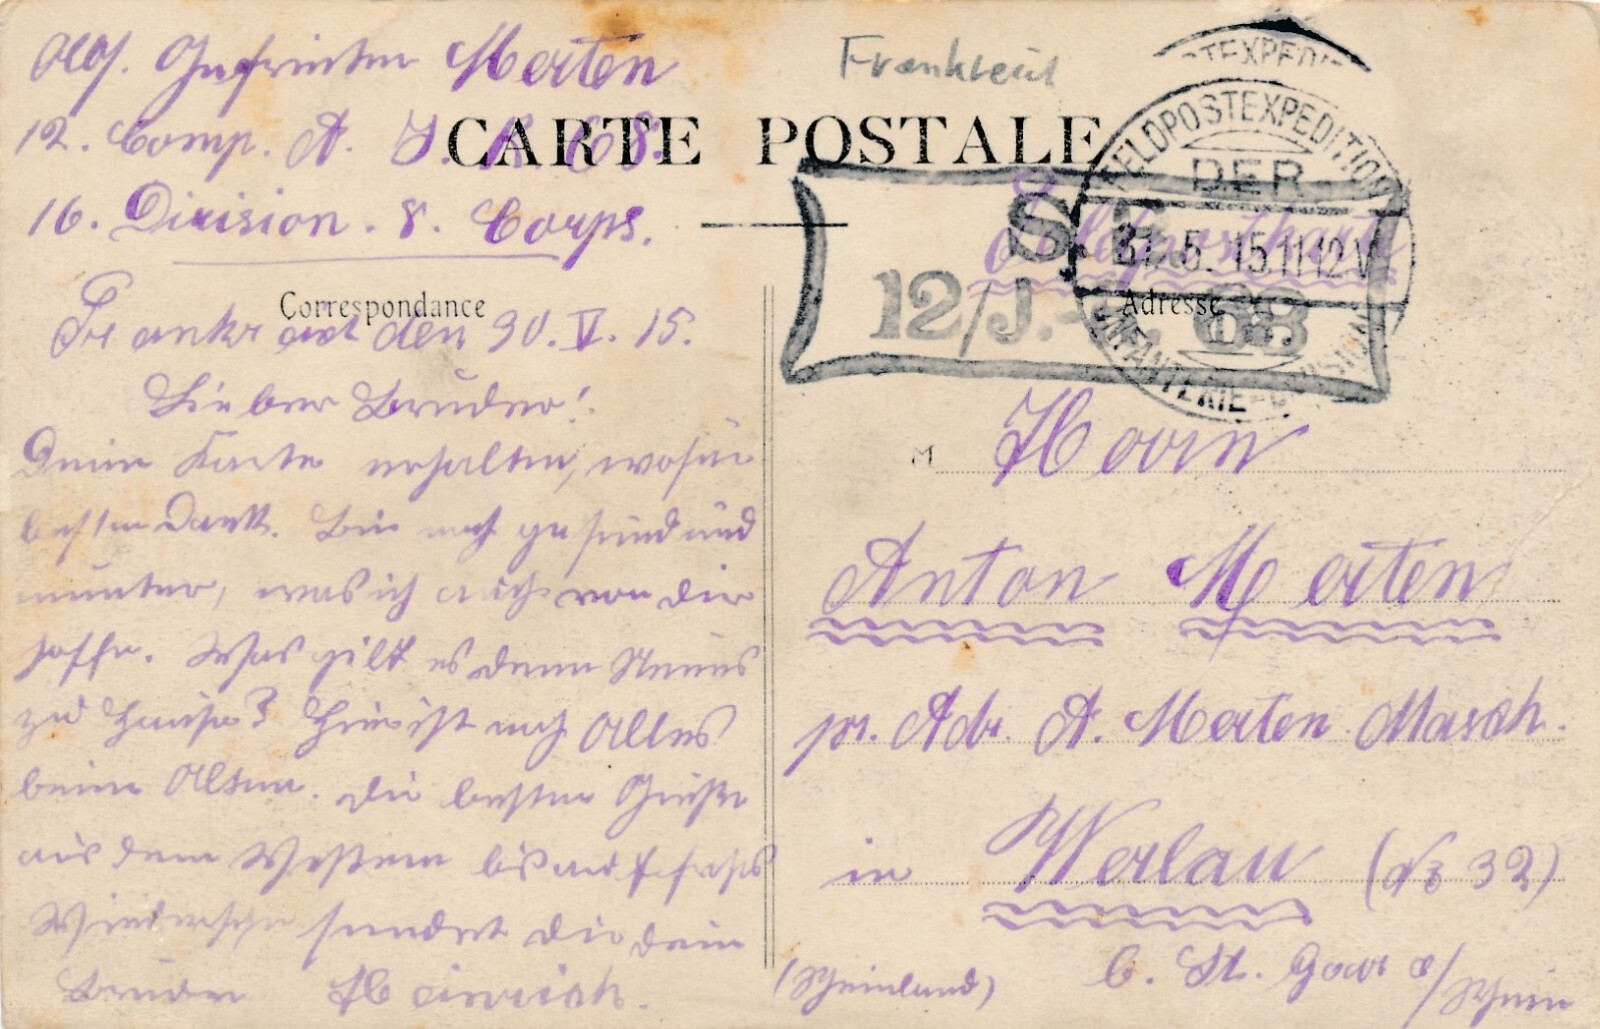 Abs. Gefreiter Merten
12. Comp. A. J. R. 68.
16. Division. 8. Corps.
Frankreich
CARTE POSTALE
Correspondance
Frankreich den 30. V. 15.
Lieber Bruder!
Deine Karte erhalten, wofür
besten Dank. Bin noch gesund und
munter, was ich auch von dir
hoffe. Was gibt es denn Neues
zu Hause? Hier ist noch Alles
beim Alten. Die besten Grüße
aus dem Westen bis auf frohes
Wiedersehn sendet dir dein
Bruder Heinrich.
FELDPOSTEXPEDITION
DER
31.5.15 11-12 V
INFANTERIE-DIVISION
S. B.
12/J.-R. 68
Feldpostkarte
Adresse
M Herrn
Anton Merten
pr. Adr. A. Merten Masch.
in Werlau (No 32)
b. St. Goar a/Rhein
(Rheinland)